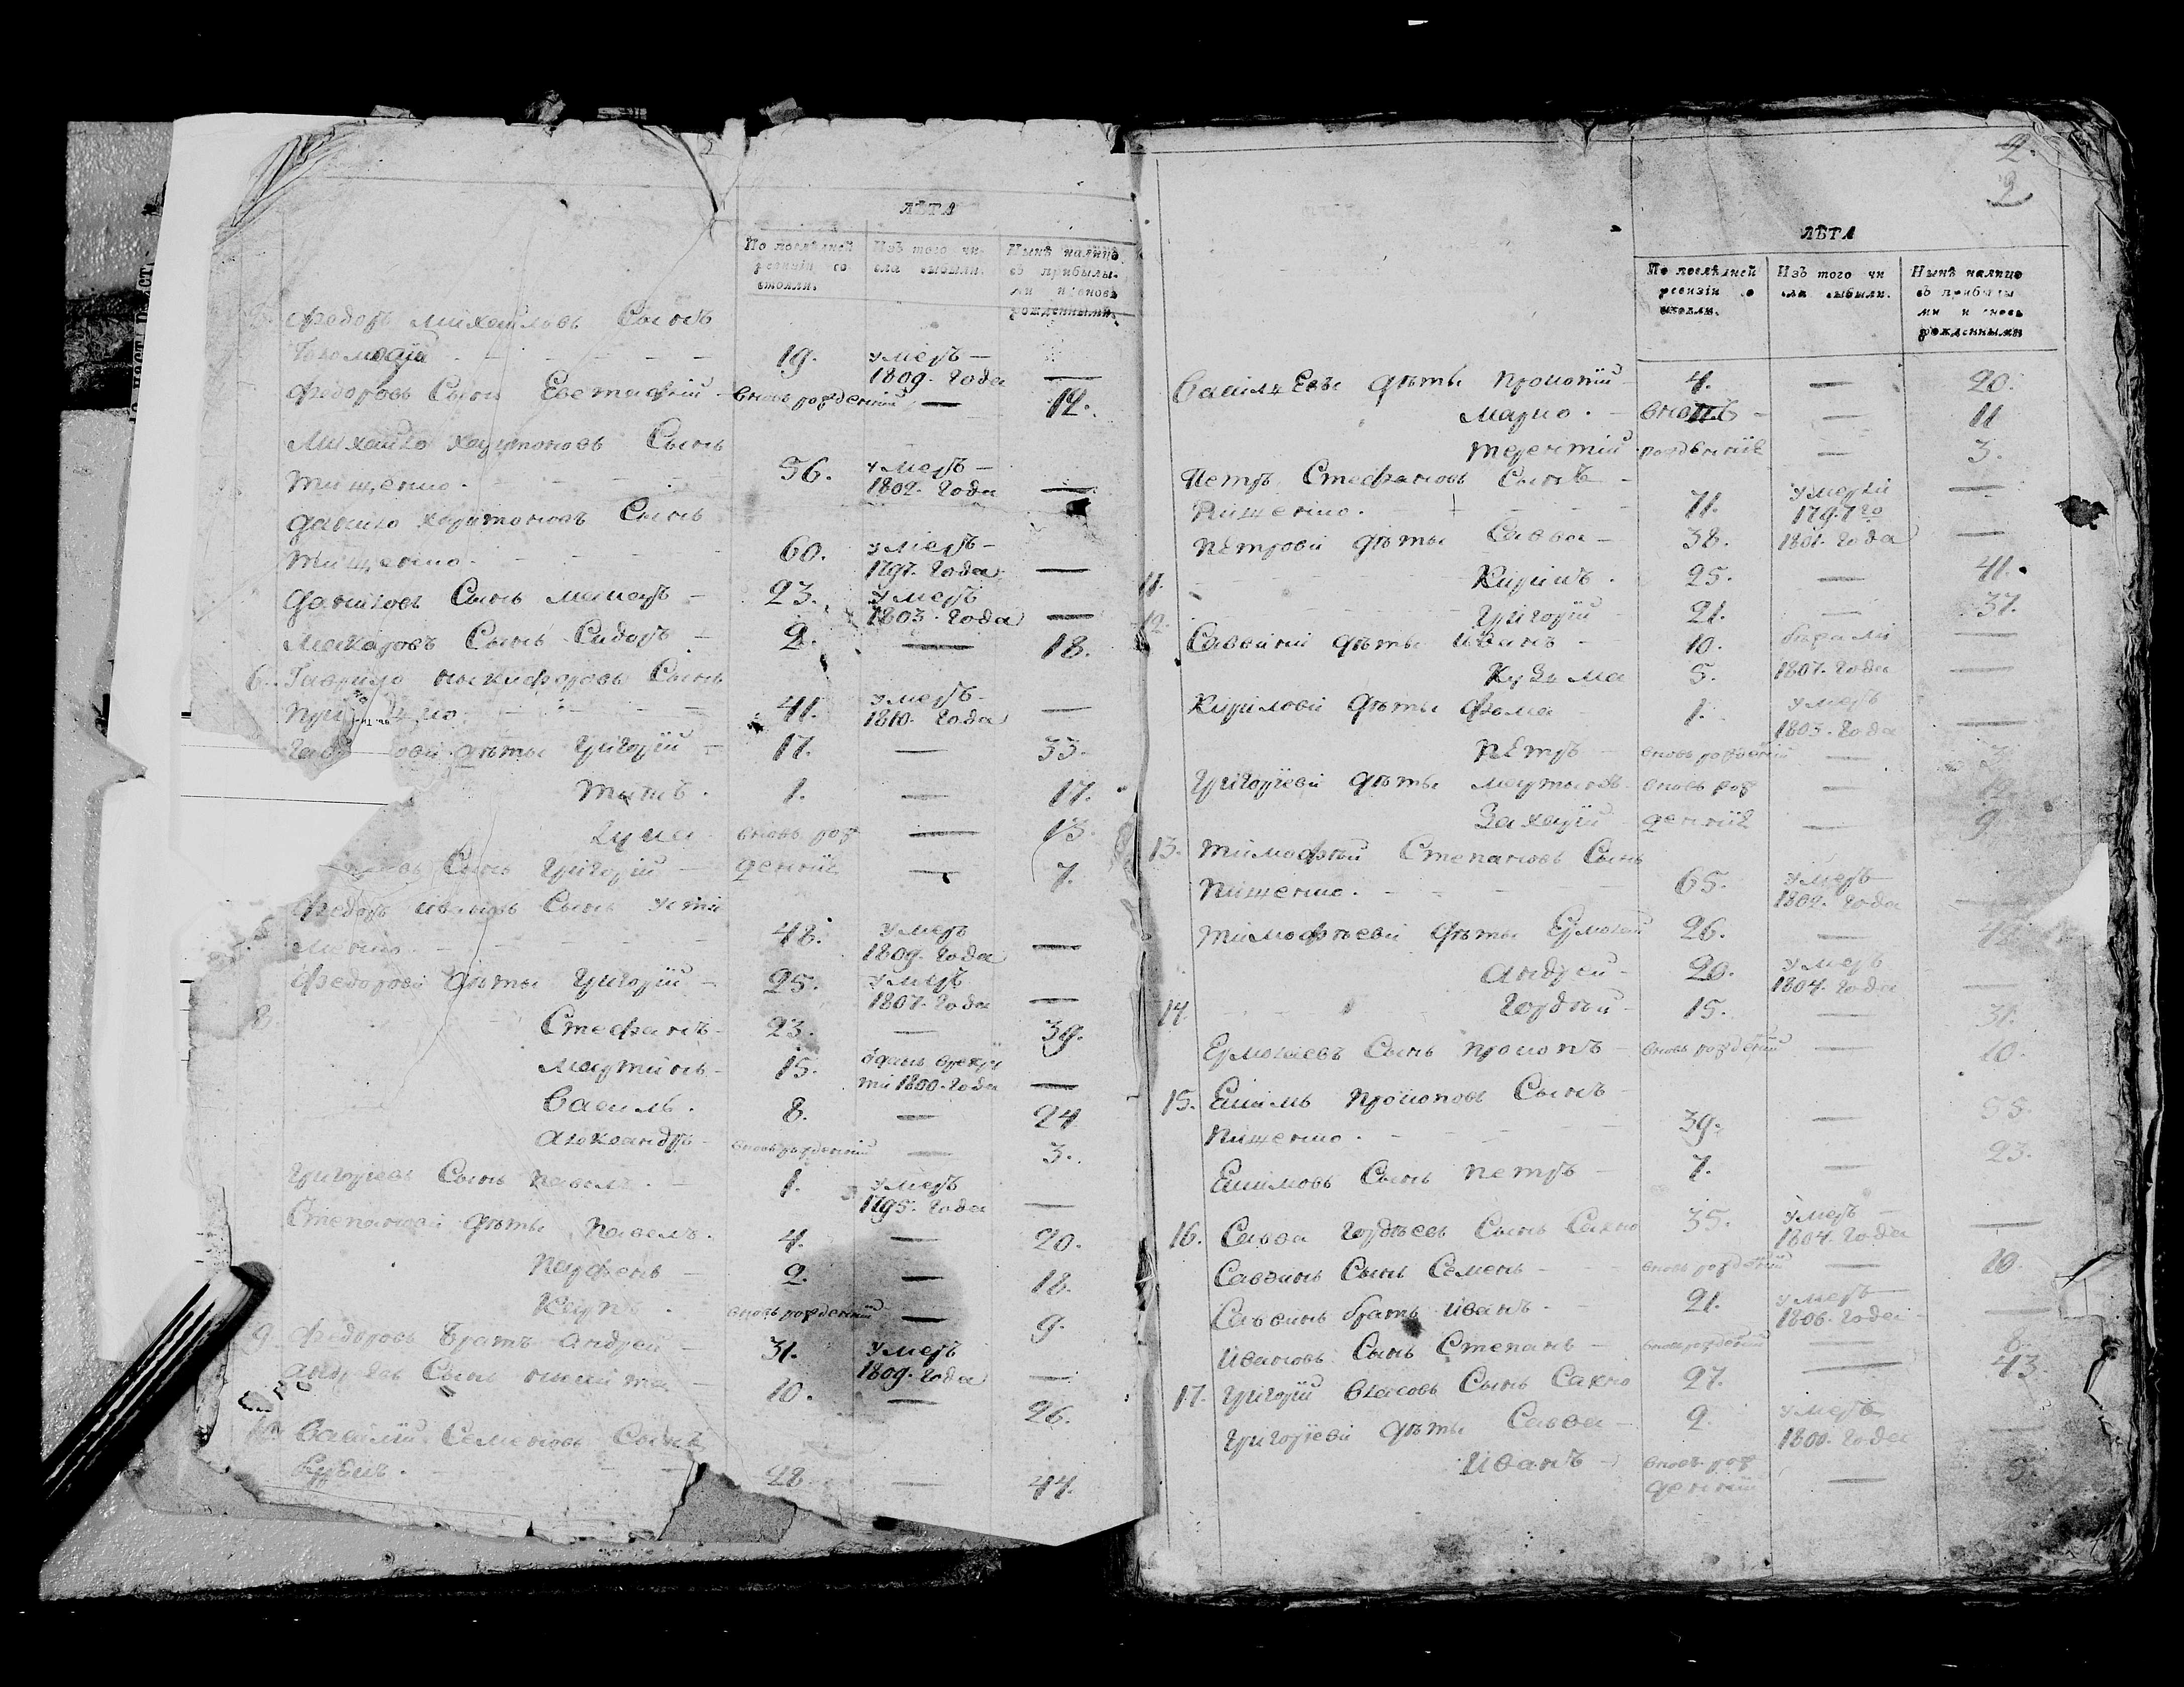 ЛѢТА
По послѣдней ревизіи состояли.
Изъ того числа выбыли.
Нынѣ налицо съ прибылыми и вновь рожденными.
Федоръ Михайловъ Сынъ
19. умеръ 1809. года —
Федоровъ Сынъ Евстафій - вновь рожденный — 12.
Михайло Харитоновъ Сынъ
Тищенко. 56. умеръ 1802. года —
Данило Харитоновъ Сынъ
Тищенко. 60. умеръ 1797. года —
Даниловъ Сынъ Макаръ - 23. умеръ 1803. года —
Макаровъ Сынъ Сидоръ - 2. — 18.
6. Гаврило Никифоровъ Сынъ
41. умеръ 1810. года —
дѣты Григорій - 17. — 33.
Титъ. 1. — 17.
Лука вновь рож — 13.
Сынъ Григорій - денніи — 7.
Федоръ Ивановъ Сынъ
48. умеръ 1809. года —
Федорови дѣты Григорій - 25. умеръ 1807. года —
8. Стефанъ - 23. — 39.
Мартинъ - 15. отданъ врекру ти 1800. года —
Василь. 8. — 24
Александръ - вновь рожденній — 3.
Григоріевъ Сынъ Павелъ. 1. умеръ 1795. года —
Степанови дѣты Павелъ. 4. — 20.
Парфенъ - 2. — 18.
Карпъ. вновь рожденній — 9.
9. Федоровъ Братъ Андрей - 31. умеръ 1809. года —
Сынъ Никита - 10. — 26.
10. Василій Семеновъ Сынъ
28. — 44.
2.
2
ЛѢТА
По послѣдней ревизіи состояли.
Изъ того числа выбыли.
Нынѣ налицо съ прибылыми и вновь рожденными
Васильевы дѣты Прокопій - 4. — 20.
Марко. - вновь — 11
Терентій рожденніе — 3.
Петръ Стефановъ Сынъ -
Пищенко. 71. умерли 1797го —
Петрови дѣты Савва - 38. 1801. года —
11. Кирилъ. 25. — 41.
12. Григорій - 21. — 37.
Саввини дѣты Иванъ - 10. бѣжали —
Кузма 5. 1807. года —
Кирилови дѣты Фома 1. умеръ 1803. года —
Петръ - вновь рожденній —
Григоріеви дѣты Мартинъ - вновь рож — 12
Захарій - денніе — 9
13. Тимофѣй Степановъ Сынъ
Пищенко. 65. умеръ 1802. года —
Тимофѣеви дѣты Ермолай 26. —
Андрей - 20. умеръ 1804. года —
14 Гордѣй - 15. — 31.
Ермолаевъ Сынъ Прокопъ - вновь рожденній — 10.
15. Екимъ Прокоповъ Сынъ
Пищенко. 39. — 55.
Екимовъ Сынъ Петръ - 7. — 23.
16. Савва Гордѣевъ Сынъ Сахно 35. умеръ 1804. года —
Саввинъ Сынъ Семенъ - вновь рожденній — 10.
Саввинъ братъ Иванъ - 21. умеръ 1806. года —
Ивановъ Сынъ Степанъ - вновь рожденній — 8.
17. Григорій Власовъ Сынъ Сахно 27. — 43
Григоріеви дѣты Савва - 2. умеръ 1800. года —
Иванъ - вновь рожденній —